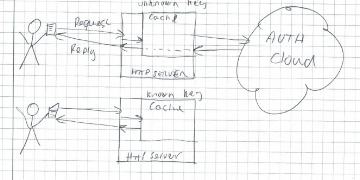 unknown Key
Cache
Request
Reply
AUTH
Cloud
HTTP SERVER
known Key
Cache
HTTP Server